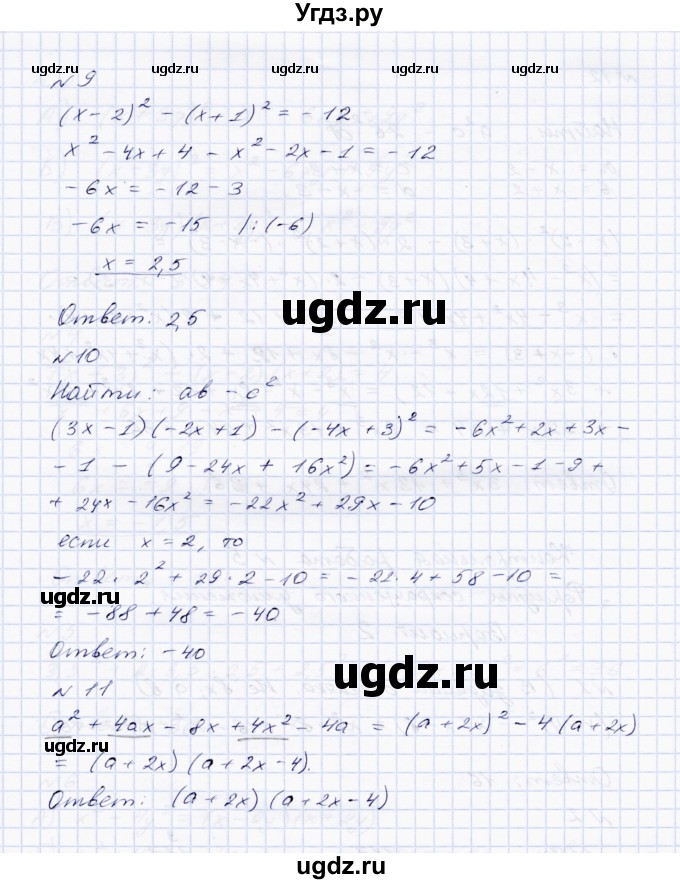 Угдз.ру
ugdz.ru ugdz.ru ugdz.ru ugdz.ru
N 9
(x-2)² - (x+1)² = -12
x² - 4x + 4 - x² - 2x - 1 = -12
-6x = -12 - 3
-6x = -15 /:(-6)
x = 2,5
Ответ: 2,5
ugdz.ru
N 10
Найти: ab - c²
(3x-1)(-2x+1) - (-4x+3)² = -6x² + 2x + 3x -
- 1 - (9 - 24x + 16x²) = -6x² + 5x - 1 - 9 +
+ 24x - 16x² = -22x² + 29x - 10
если x = 2, то
-22 · 2² + 29 · 2 - 10 = -22 · 4 + 58 - 10 =
ugdz.ru
= -88 + 48 = -40
Ответ: -40
ugdz.ru
N 11
a² + 4ax - 8x + 4x² - 4a = (a+2x)² - 4(a+2x)
ugdz.ru ugdz.ru ugdz.ru ugdz.ru
= (a+2x)(a+2x-4).
Ответ: (a+2x)(a+2x-4)
ugdz.ru
ugdz.ru